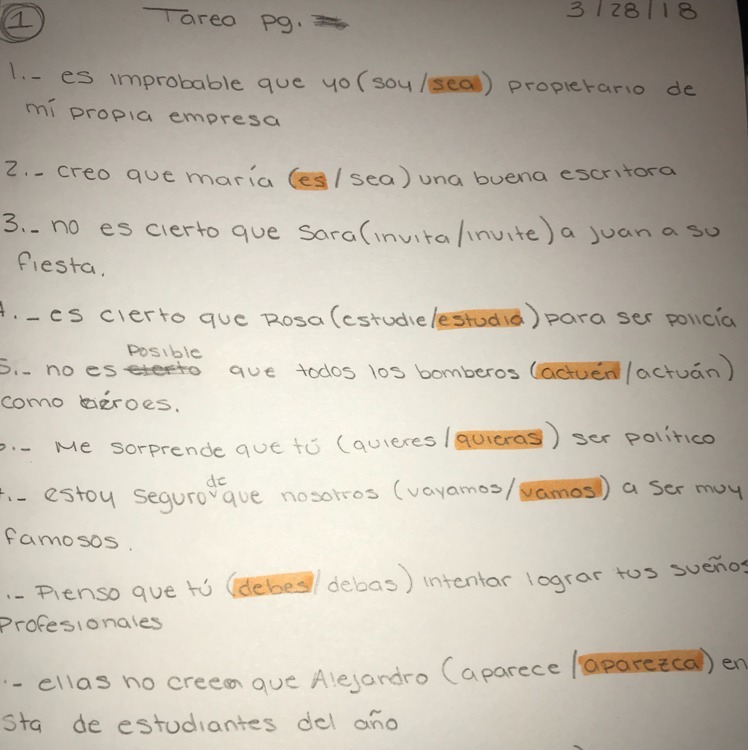 1 Tarea pg. 3/28/18
1.- es improbable que yo (soy/sea) propietario de
mí propia empresa
2.- creo que maría (es/sea) una buena escritora
3.- no es cierto que Sara (invita/invite) a Juan a su
fiesta.
.- es cierto que Rosa (estudie/estudia) para ser policía
5.- no es posible que todos los bomberos (actuén/actuán)
como héroes.
.- Me sorprende que tú (quieres/quieras) ser político
.- estoy seguro de que nosotros (vayamos/vamos) a ser muy
famosos.
.- Pienso que tú (debes/debas) intentar lograr tus sueños
Profesionales
.- ellas no creen que Alejandro (aparece/aparezca) en
sta de estudiantes del año